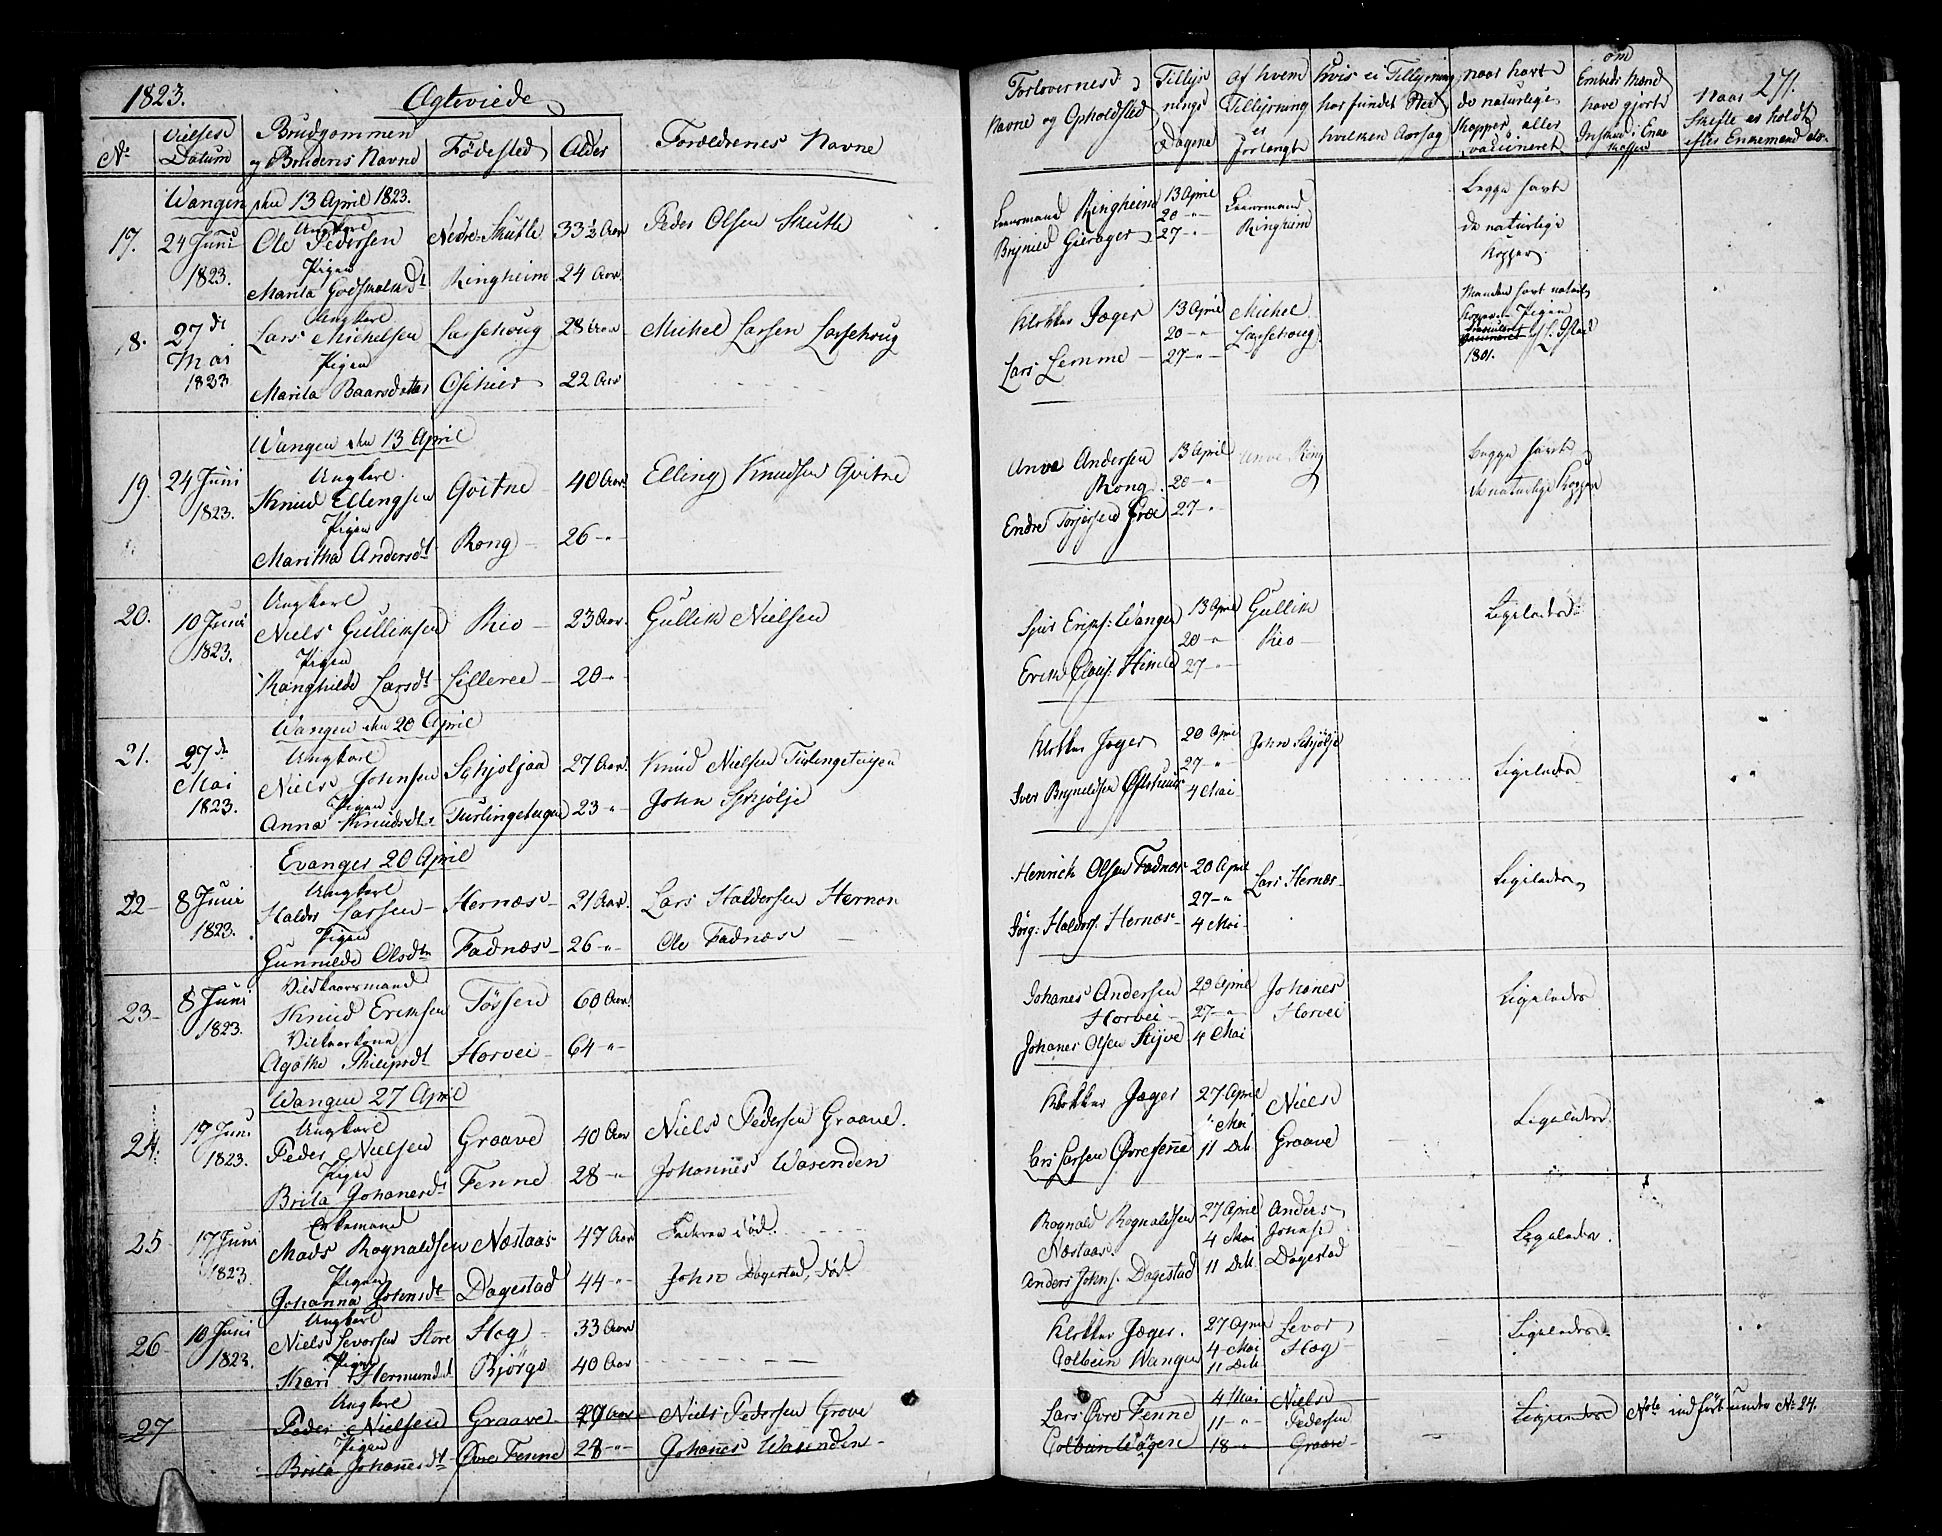 1823.
Ægteviede
No
Vielses Datum
Brudgommen og Brudens Navne
Fødested
Alder
Forældrenes Navne
Wangen den 13 April 1823.
17.
24 Juni 1823.
Ungkarl
Ole Pedersen
Nedre Skutle
33½ Aar
Peder Olsen Skutle
Pigen
Marita Godskalksdt
Ringheim
24 Aar
18.
27de Mai 1823
Ungkarl
Lars Michelsen
Lassehoug
28 Aar
Michel Larsen Lassehoug
Pigen
Marita Baarsdatter
22 Aar
Wangen den 13 April
19.
24 Juni 1823.
Ungkarl
Knud Ellingsen
Gvitne
40 Aar
Elling Knudsen Gvitne
Pigen
Maritha Andersdt
Rong
26 -"-
20.
10 Juni 1823.
Ungkarl
Niels Gulliksen
Rio
23 Aar
Gullik Nielsen
Pigen
Ranghilde Larsdt
Lilleree
20 -"-
Wangen den 20 April
21.
27de Mai 1823.
Ungkarl
Niels Johnsen
Schjoljaa
27 Aar
Knud Nielsen Turlingeteigen
Pigen
Anna Knudsdt
Turlingeteigen
23 -"-
John Schjølje
Evanger 20 April
22
8 Juni 1823.
Ungkarl
Haldor Larsen
Hernæs
21 Aar
Lars Haldorsen Hernæs
Pigen
Gunnilde Olsdtr
Fadnæs
26 -"-
Ole Fadnæs
23
8 Juni 1823.
Vilkaarsmand
Knud Eriksen
Tøssen
60 Aar
Vilkaarkone
Agathe Philipsdt
Horvei
64 -"-
Wangen 27 April
24.
17 Juni 1823.
Ungkarl
Peder Nielsen
Graave
40 Aar
Niels Pedersen Graave.
Pigen
Brita Johanesdt
Fenne
28 -"-
Johannes Wasenden
25
17 Juni 1823.
Enkemand
Mads Rognaldsen
Næstaas
47 Aar
Pigen
Johanna Johnsdt
Dagestad
44 -"-
John Dagestad, død
26
10 Juni 1823.
Ungkarl
Niels Levorsen Store
Hæg
33 Aar
Pigen
Kari Hermundsd
Bjørgo
40 Aar
27
Ungkarl
Peder Nielsen
Graave
40 Aar
Niels Pedersen Grove
Pigen
Brita Johannesdt
Øvre Fenne
28 -"-
Johanes Wasenden
271.
Forlovernes Navne og Opholdsted
Tillysnings Dagene
Af hvem Tillysning er forlangt
Hvis ei Tillysning har fundet Sted hvilken Aarsag
naar havt de naturlige Kopper eller vaccineret
om Embeds Mænd have gjort Indskud i Enkekassen
Naar Skifte er holdt efter Enkemand etc.
Lensmand Ringheim
Brynild Gierager
13 April
20 -"-
27 -"-
Lensmand Ringheim
Begge havt de naturlige Kopper.
Klokker Jæger
Lars Lemme
13 April
20 -"-
27 -"-
Michel Lassehoug
Manden havt naturl. Kopper Pigen
1801.
Anve Andersen Rong
Endre Torjersen Græe
13 April
20 -"-
27 -"-
Begge havt de naturlige Kopper
Sjur Eriks: Wangen
Erik Olais: Himle
13 April
20 -"-
27 -"-
Gullik Rio
Ligeledes
Klokker Jæger
Iver Brynildsen
20 April
27 -"-
4 Mai
John Schjølje
Ligeledes
Henrich Olsen Fadnæs
Jørg: Haldors: Hernæs
20 April
27 -"-
4 Mai
Lars Hernæs
Ligeledes
Johanes Andersen Horvei
Johanes Olsen Skjve
20 April
27 -"-
4 Mai
Johanes Horvei
Ligeledes
Klokker Jæger
Lars Larsen Øvrefenne
27 April
" Mai
11 Dito
Niels Graave
Ligeledes
Rognald Rognaldsen Næstaas
Anders Johns. Dagestad
27 April
4 Mai
11 Dito
Anders Johns. Dagestad
Ligeledes.
Klokker Jæger.
Colbein Wangen
27 April
4 Mai
11 Dito
Levor Hæg
Ligeledes.
Lars Øvre Fenne
Colbein Wangen
4 Mai
11 -"-
18 "
Niels Pedersen Graave
Ligeledes
Note indført under No 24.